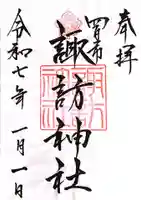 奉拝
四日市
諏訪神社
令和七年一月一日